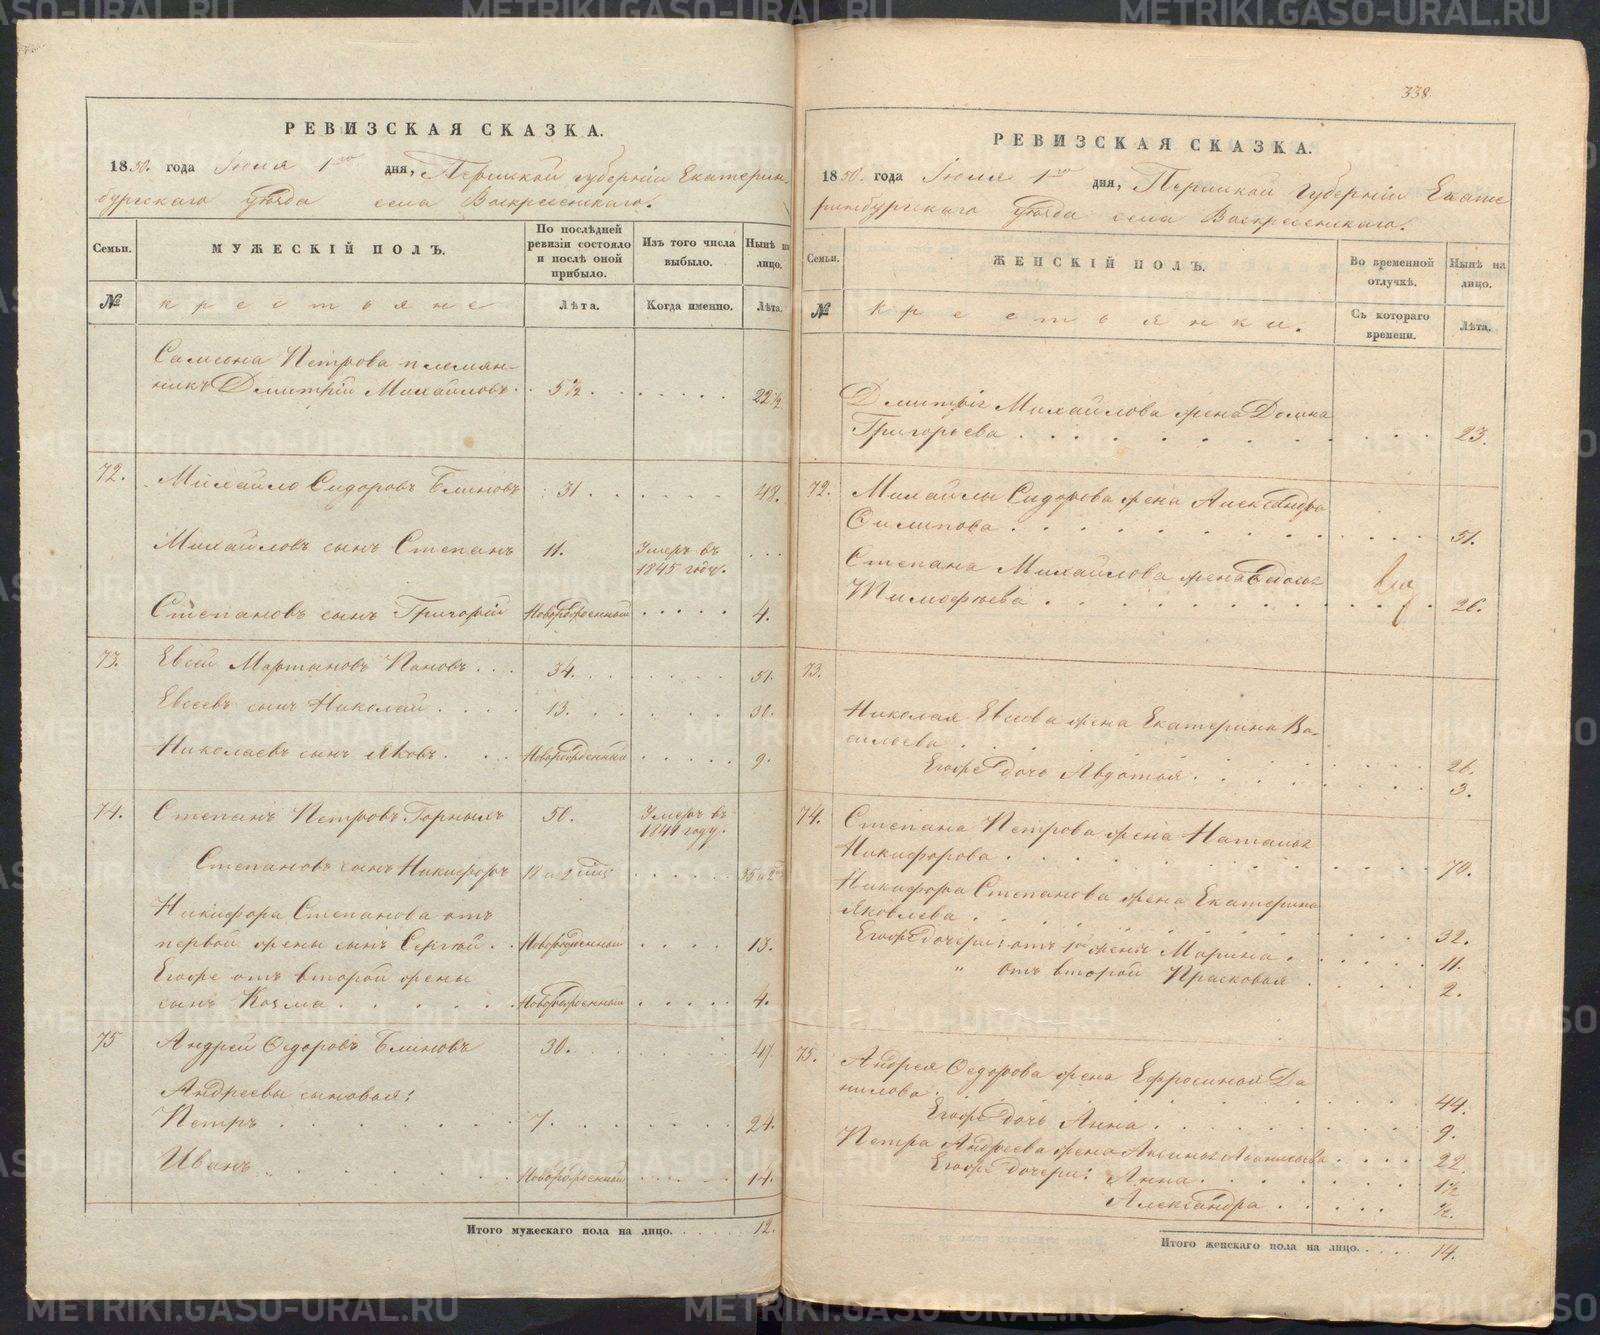 РЕВИЗСКАЯ СКАЗКА.
1850. года Июля 1го дня, Пермской губерніи Екатерин-
бургскаго уѣзда села Воскресенскаго.
Семьи.
МУЖЕСКІЙ ПОЛЪ.
По послѣдней ревизіи состояло и послѣ оной прибыло.
Изъ того числа выбыло.
Нынѣ на лицо.
№
крестьяне
Лѣта.
Когда именно.
Лѣта.
Самсона Петрова племян-
никъ Дмитрій Михайловъ. 5½ 22½
72. Михайло Сидоровъ Блиновъ 31. 48.
Михайловъ сынъ Степанъ 11. Умеръ въ
1845 году.
Степановъ сынъ Григорій Новорожденный 4.
73. Евсей Мартыновъ Пановъ 34. 51.
Евсеевъ сынъ Николай 13. 30.
Николаевъ сынъ Яковъ. Новорожденный 9.
74. Степанъ Петровъ Горныхъ 50. Умеръ въ
184 году.
Степановъ сынъ Никифоръ 18 и 9 35 и 2
Никифора Степанова отъ
первой жены сынъ Сергѣй Новорожденный 13.
Егоже отъ второй жены
сынъ Козма Новорожденный 4.
75 Андрей Ѳедоровъ Блиновъ 30. 47.
Андреевы сыновья:
Петръ 7. 24.
Иванъ Новорожденный 14.
Итого мужескаго пола на лицо. 12.
338.
РЕВИЗСКАЯ СКАЗКА.
1850. года Июля 1го дня, Пермской Губерніи Екате
ринбургскаго уѣзда села Воскресенскаго.
Семьи.
ЖЕНСКІЙ ПОЛЪ.
Во временной отлучкѣ.
Нынѣ на лицо.
№
крестьянки.
Съ котораго времени.
Лѣта.
Дмитрія Михайлова жена Домна
Григорьева 23.
72. Михайлы Сидорова жена Александра
Филипова 51.
Степана Михайлова жена
Тимофѣева 26.
73.
Николая Евсѣева жена Екатерина Ва-
сильева 26.
Егоже дочь Авдотья. 3.
74. Степана Петрова жена Наталья
Никифорова 70.
Никифора Степанова жена Екатерина
Яковлева 32.
Егоже дочери: отъ 1й жены Марина 11.
" отъ второй Прасковья 2.
75. Андрея Ѳедорова жена Ефросинья Да
нилова. 44.
Егоже дочь Анна 9.
Петра Андреева жена Аксинья 22.
Егоже дочери: Анна 1½
Александра ½.
Итого женскаго пола на лицо. 14.
METRIKI.GASO-URAL.RU